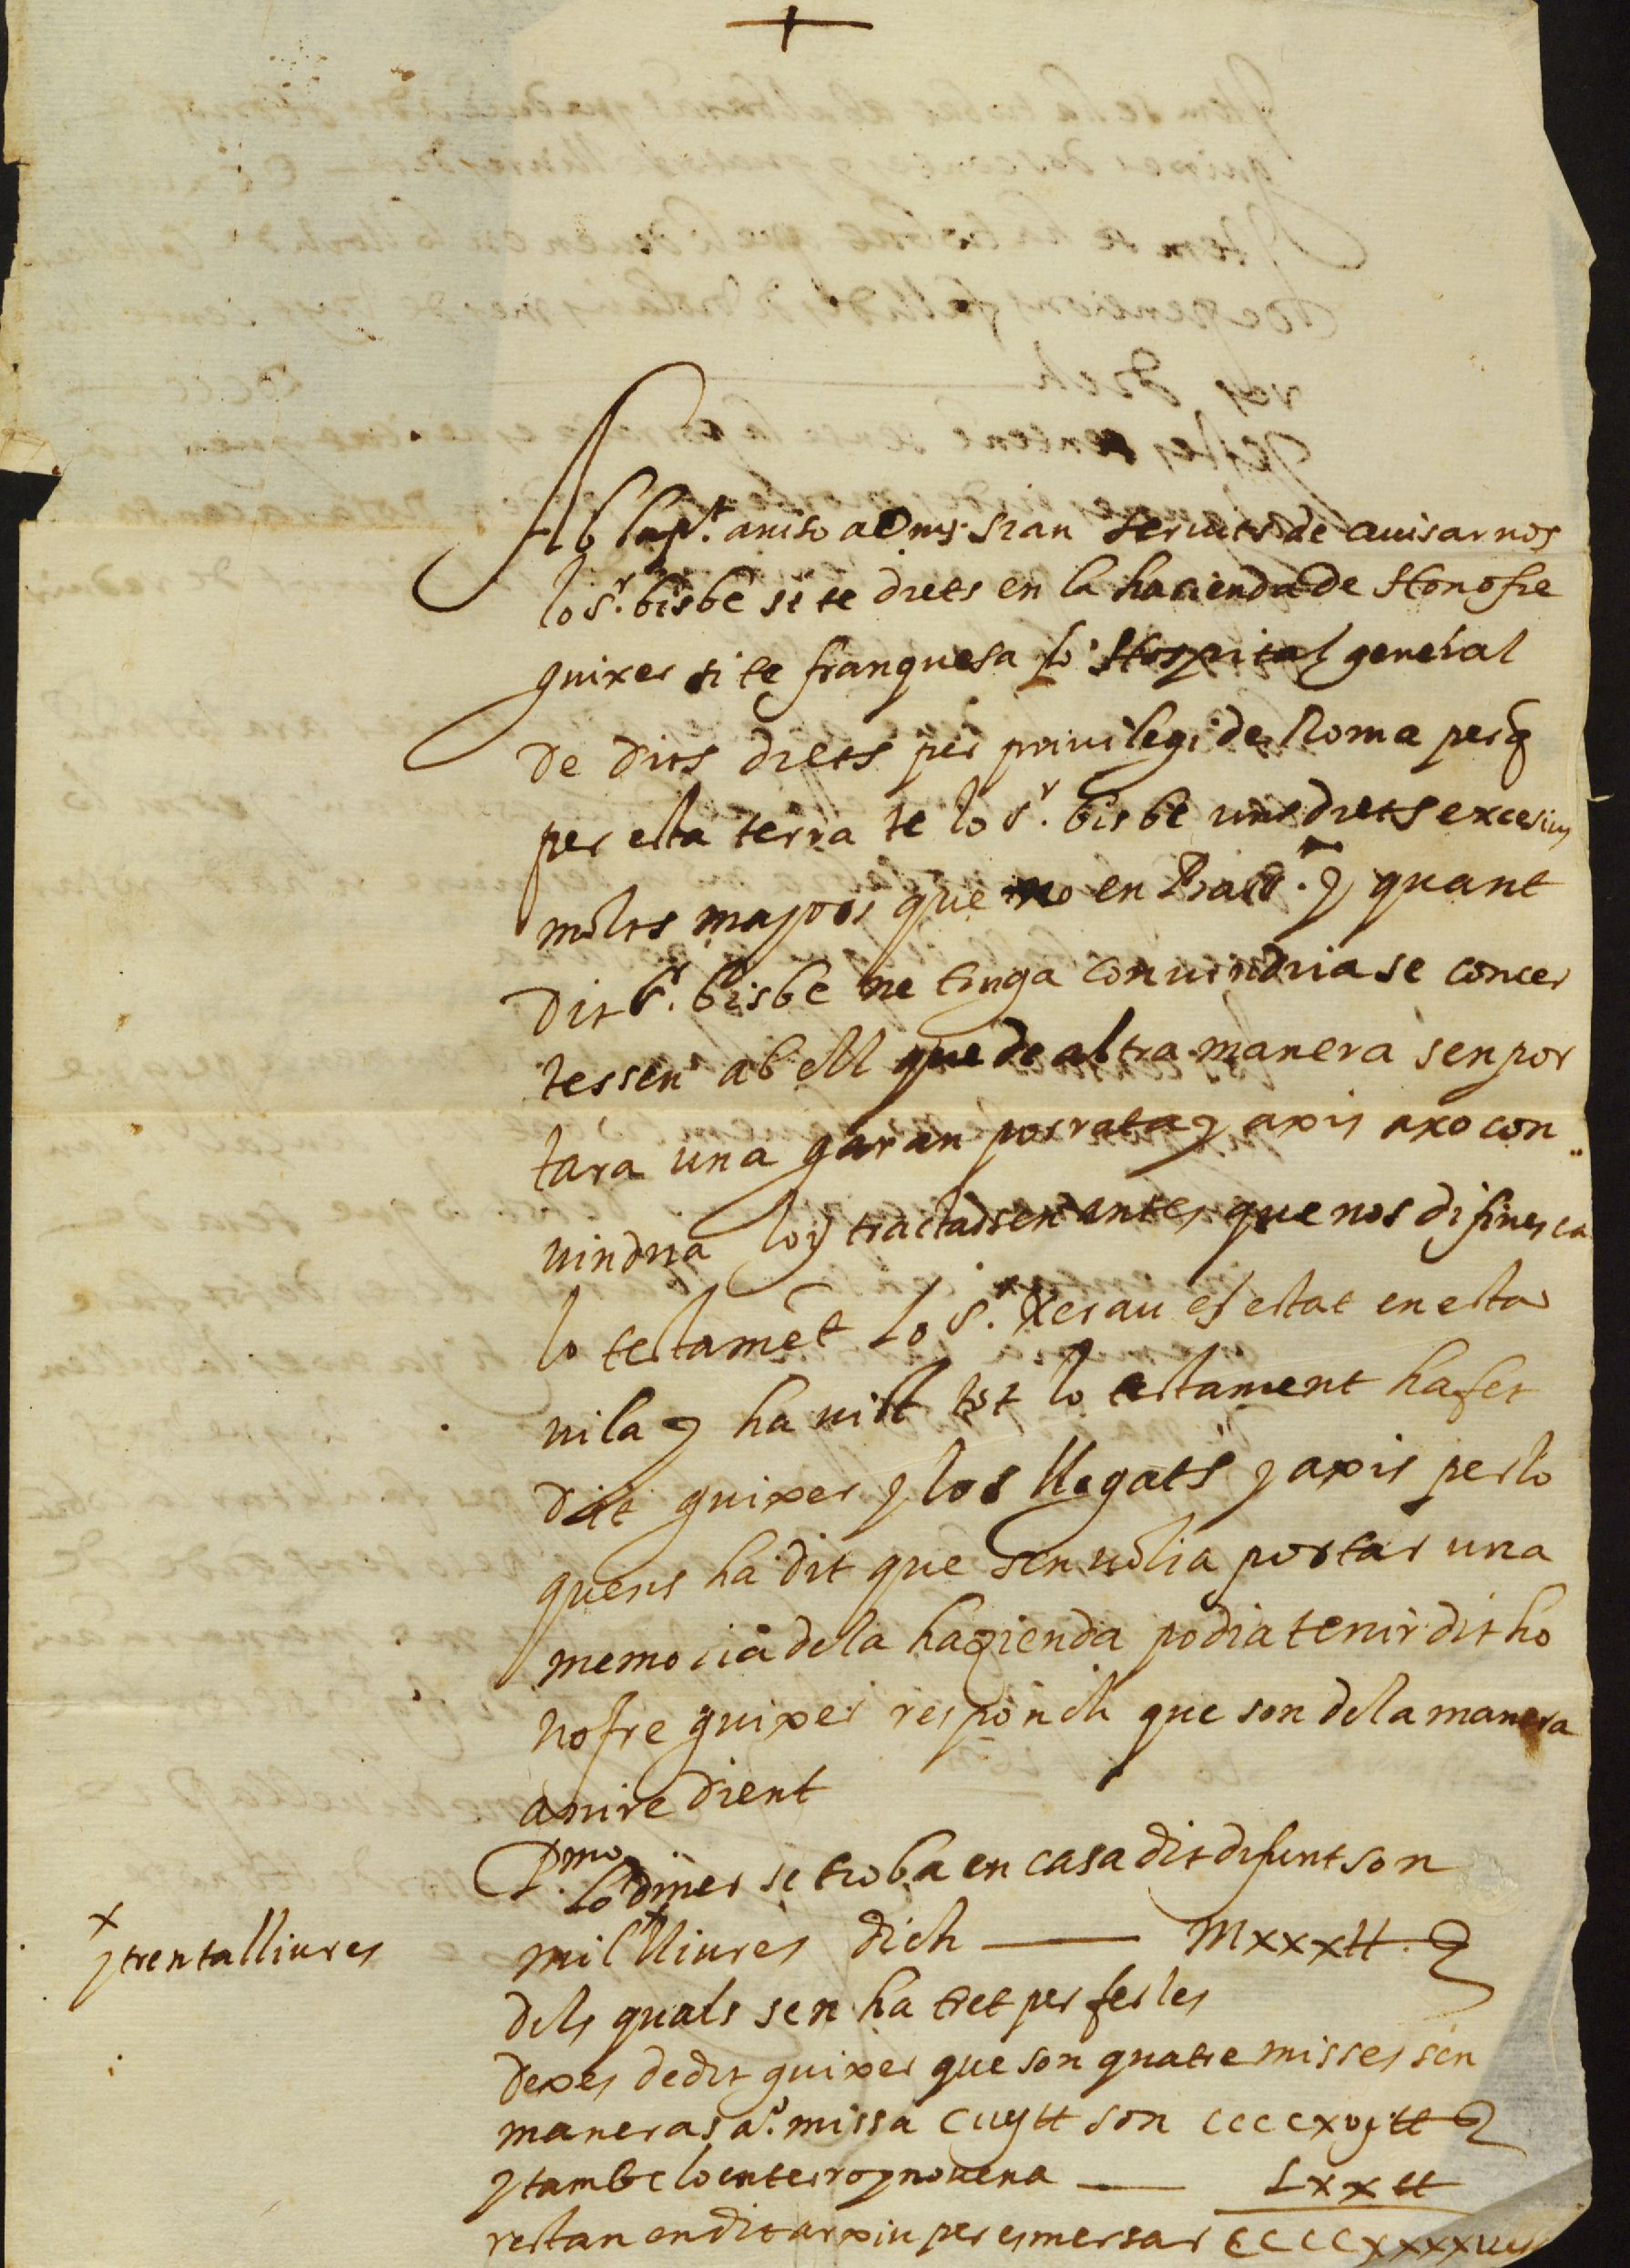 +
Ab la pnt. aviso a V ms. sian servits de avisarnos
lo Sr. bisbe si te drets en la hazienda de Honofre
guixer si te franquesa lo Hospital general
de dits drets per privilegi de Roma perq
per esta terra te lo Sr. bisbe uns drets excesius
molts majors que no en Barna. y quant
dit Sr. bisbe ne tinga convindria se concer
tessen ab ell que de altra manera sen por
tara una gran porrata y axis axo con
vindria los tractassen antes que nos difinesca
lo testamēt lo Sr. Xerau es estat en esta
vila y ha vist tot lo testament ha fet
dit guixer y los llegats y axis per lo
quens ha dit que sen volia portar una
memoria dela hazienda podia tenir dit ho
nofre guixer responch que son dela manera
anire dient
Pmo. lo diner se troba en casa dit difunt son
mil x lliures dich —— Mxxxtt
x
y trenta lliures
dels quals sen ha tret per fer les
dexes de dit guixer que son quatre misses sen
maneras a. missa CIIIJtt son CCCCxvjtt
y tambe lo enterro y novena —— Lxxtt
restan en dit arxiu per esmersar CCCCxxxx